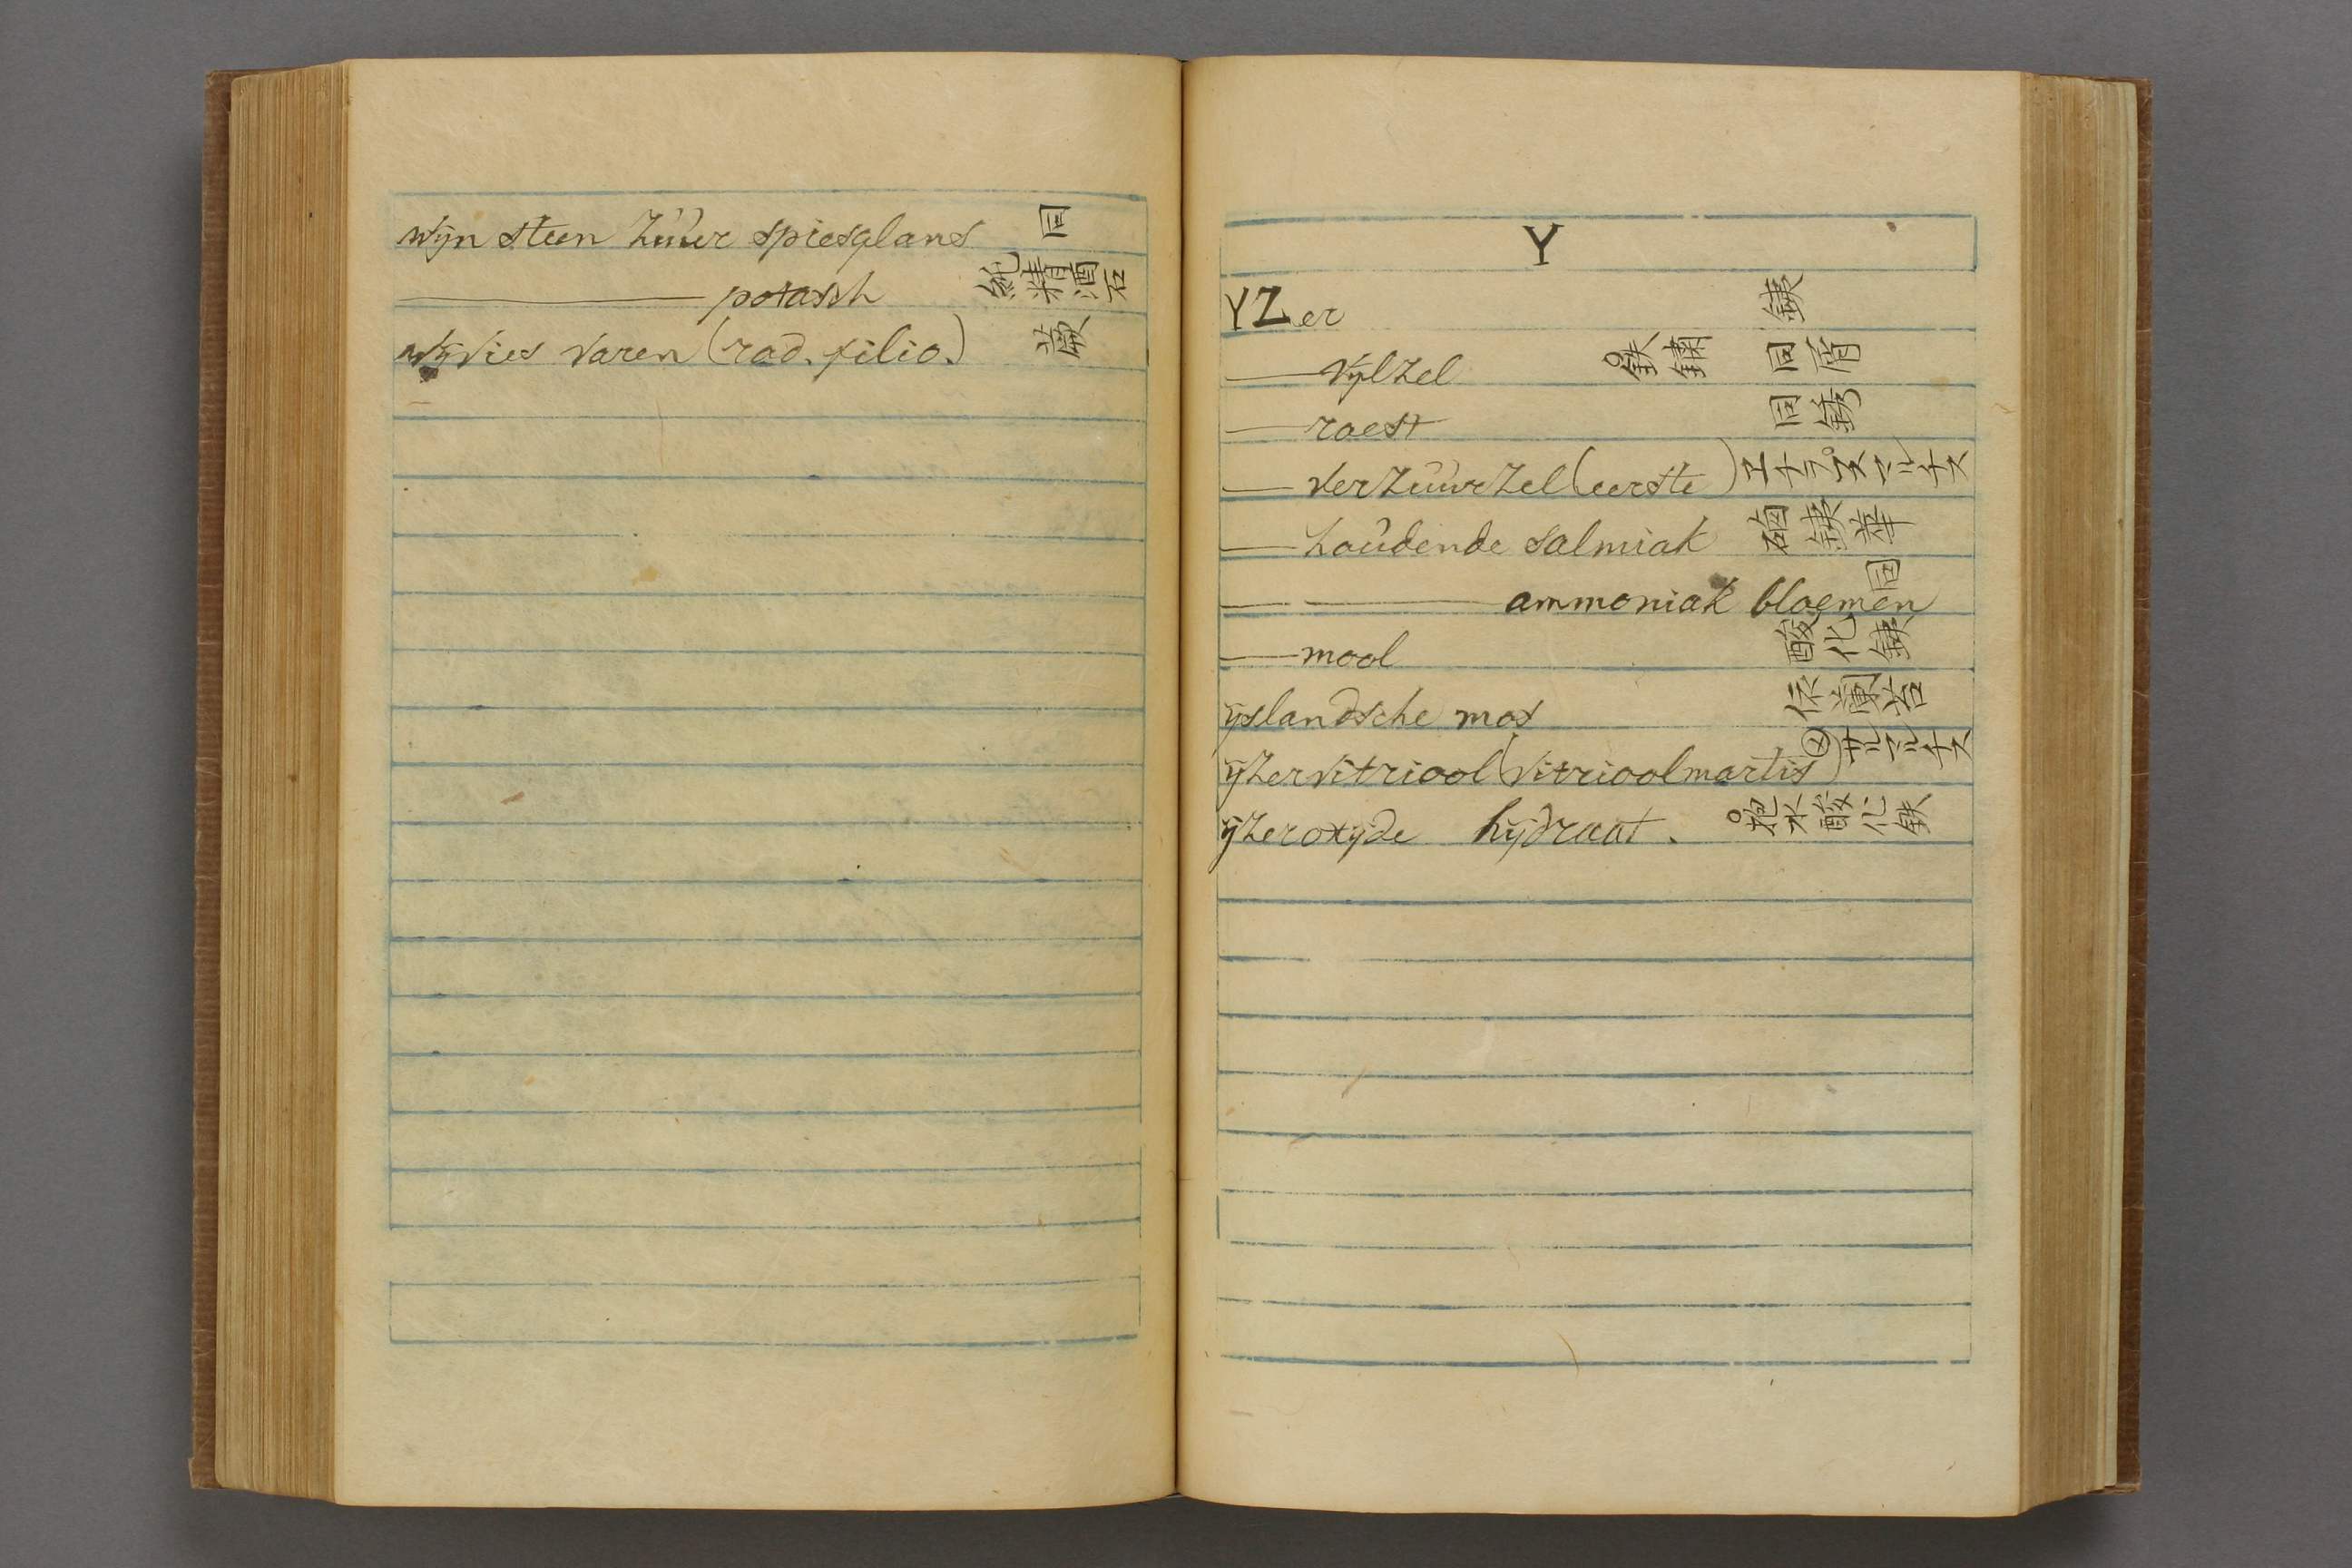 wijn steen zuuer spiesglans 同
——— potasch 純精酒石
wijvies varen (rad. filio.) 薇
Y
YZer 銕
—vijlzel ○鉄鏽 同屑
—roest 同銹
—verzuurzel (eerste) ヱナラプスマルチス
—houdende salmiak 硇銕華
— ——— ammoniak bloemen 同
—mool 酸化銕
ijslandsche mos 依蘭苔
ijzervitriool (vitrioolmartis) サルマルチス
ijzeroxijde hijdraat. ○抱水酸化鉄